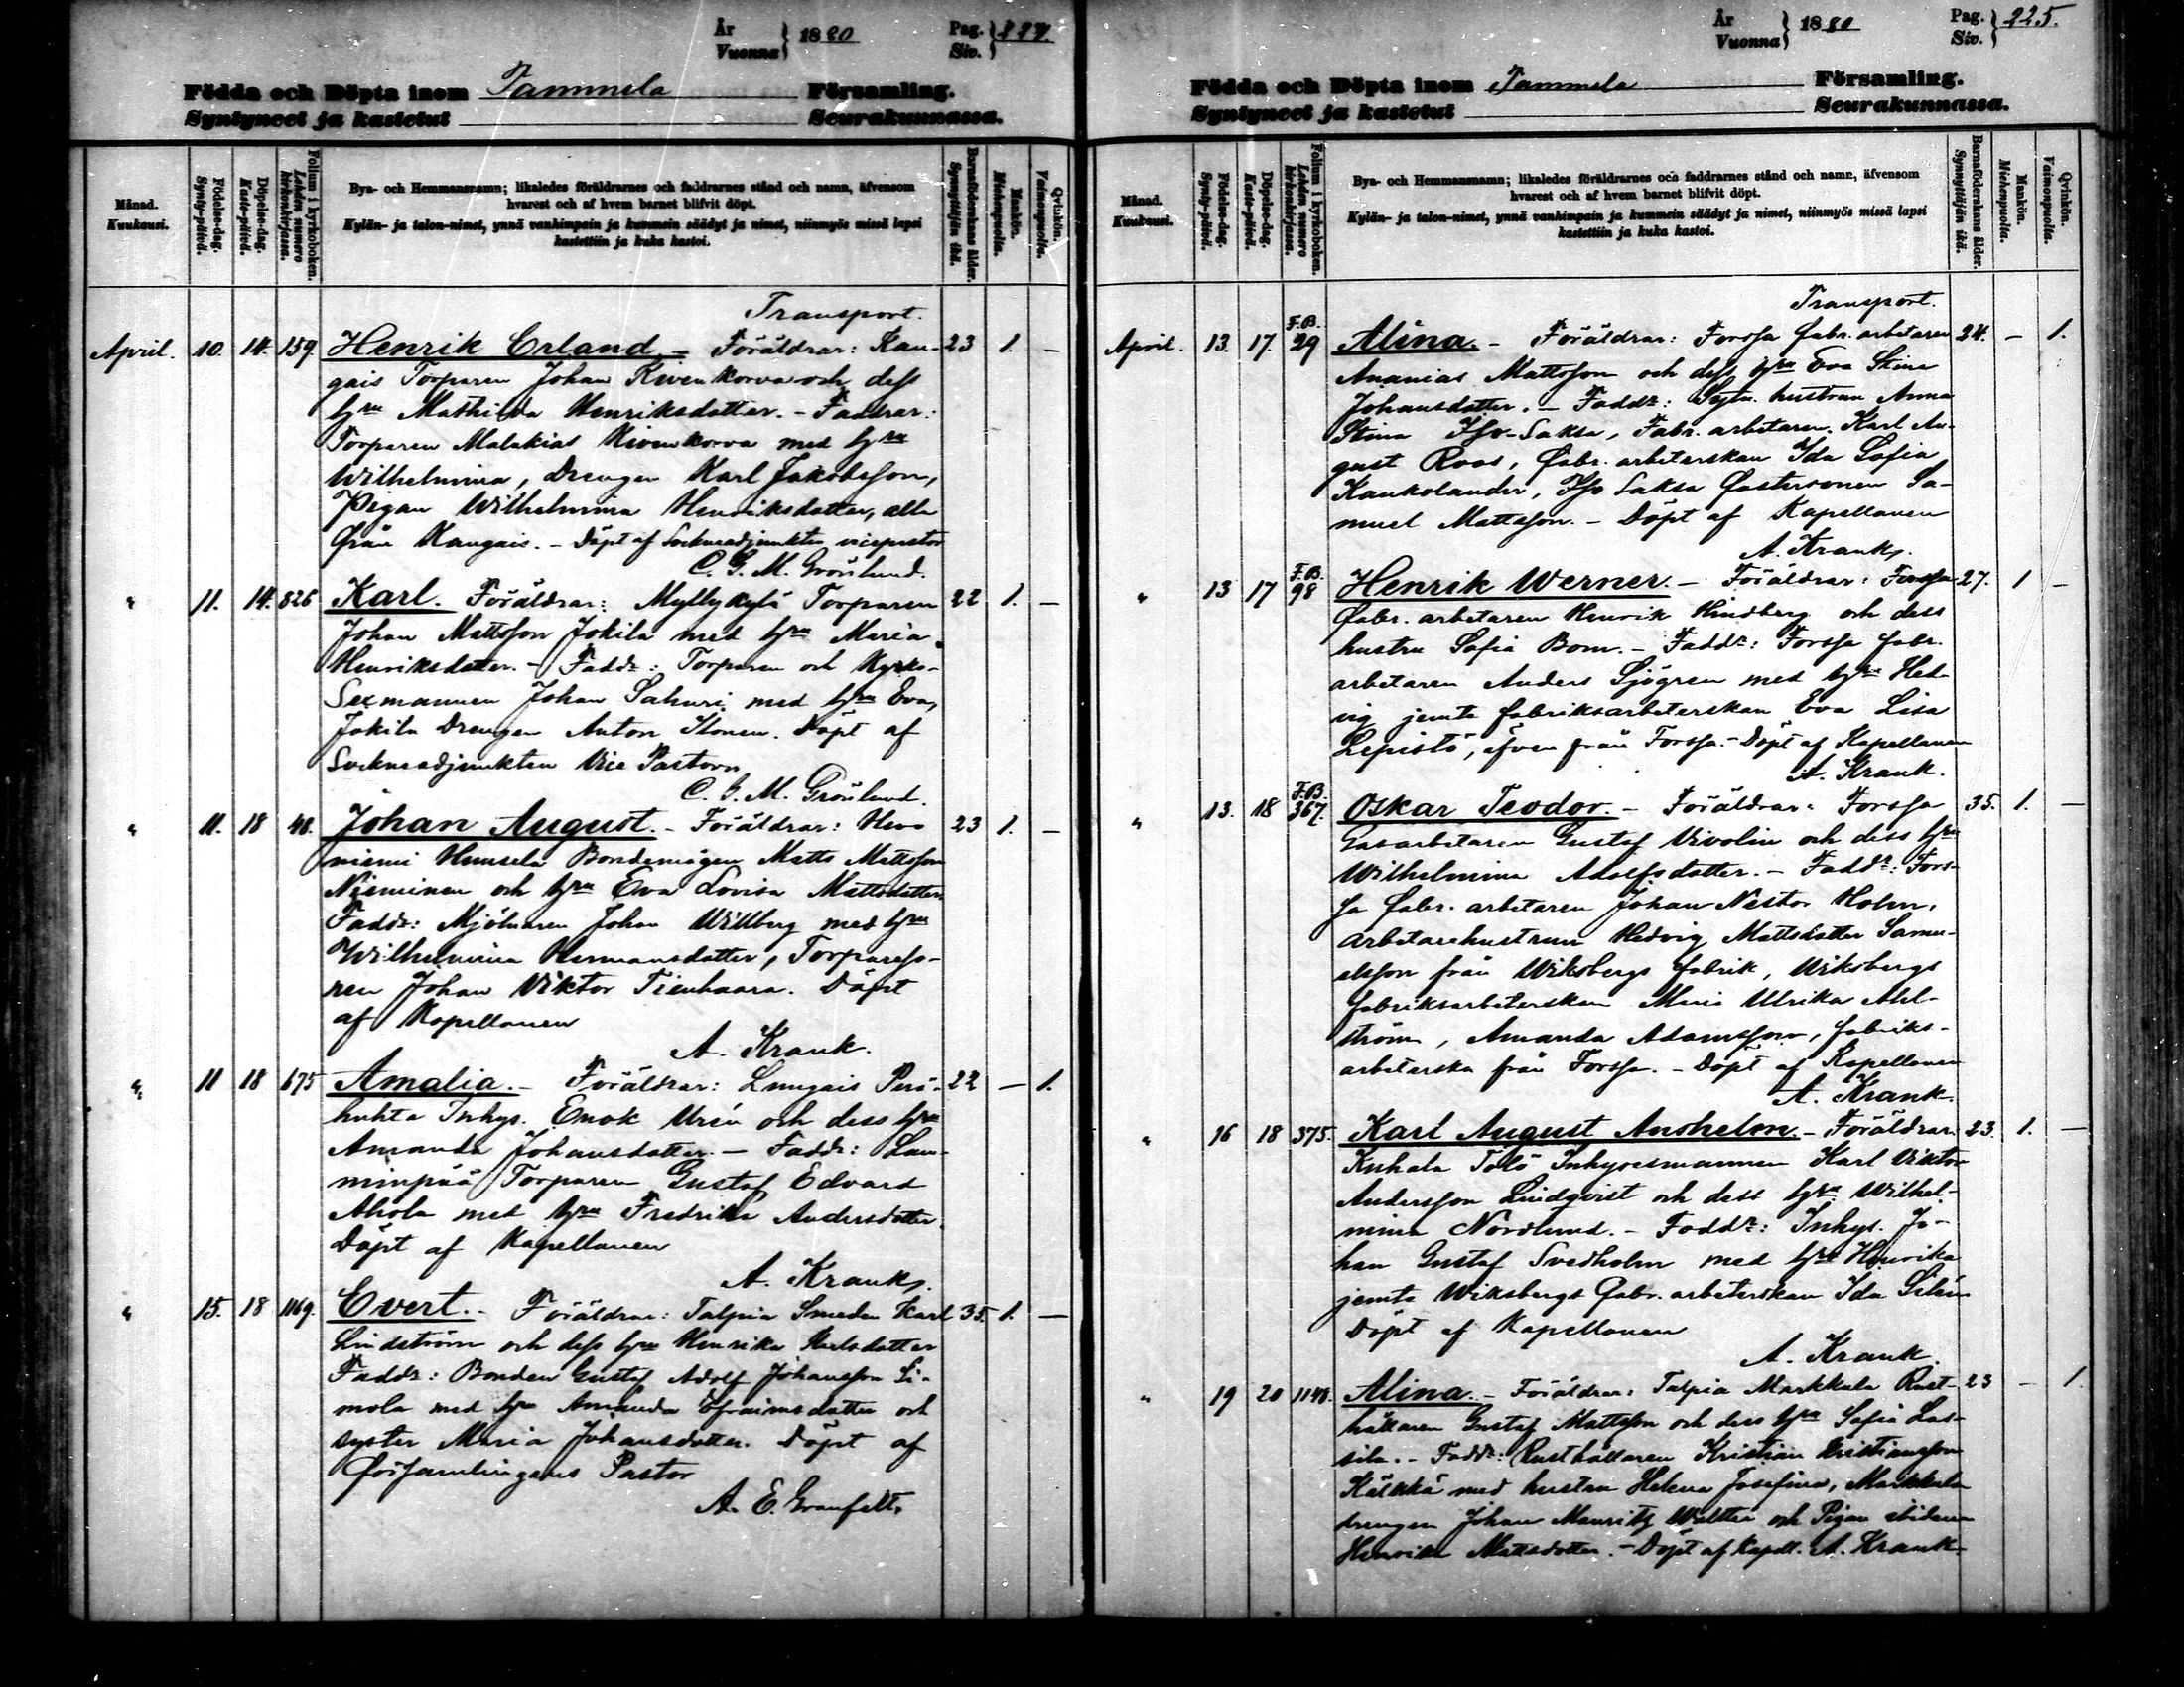 År
Vuonna } 1880
Pag.
Siv. } 224.
Födda och Döpta inom Tammela Församling.
Syntyneet ja kastetut Seurakunnassa.
Månad.
Kuukausi.
Födelse-dag.
Synty-päivä.
Döpelse-dag.
Kaste-päivä.
Folium i kyrkoboken.
Lehden numero kirkonkirjassa.
Bya- och Hemmansnamn; likaledes föräldrarnes och faddrarnes stånd och namn, äfvensom
hvarest och af hvem barnet blifvit döpt.
Kylän- ja talon-nimet, ynnä vanhimpain ja kummein säädyt ja nimet, niinmyös missä lapsi
kastettiin ja kuka kastoi.
Barnaföderskans ålder.
Synnyttäjän ikä.
Mankön.
Miehenpuolta.
Qvinkön.
Vaimonpuolta.
Transport.
April. 10. 14. 159. Henrik Erland – Föräldrar: Kau- 23 1. –
gais Torparen Johan Kivenkorva och dess
hru Mathilda Henriksdotter. – Faddrar:
Torparen Malakias Kivenkorva med hru
Wilhelmina, Drengen Karl Jakobsson,
Pigan Wilhelmina Henriksdotter, alla
från Kaugais. – Döpt af Sockneadjunkten vicepastor
C. G. M. Grönlund.
" 11. 14. 826 Karl. Föräldrar: Myllykylä Torparen 22 1. –
Johan Mattsson Jokila med hru Maria
Henriksdotter. – Faddr: Torparen och Kyrko-
Sexmannen Johan Sahuri med hru Eva,
Jokila Drengen Anton Itonen. Döpt af
Sockneadjunkten Vice Pastorn
C. G. M. Grönlund.
" 11. 18 40. Johan August. – Föräldrar: 23 1. –
niemi Bondemågen Matts Mattsson
Nieminen och hru Eva Lovisa Mattsdotter.
Faddr: Mjölnaren Johan Willberg med hru
Wilhelmina Hermansdotter, Torpareso-
nen Johan Viktor Tienhaara. Döpt
af Kapellanen
A. Krank.
" 11 18 675 Amalia. – Föräldrar: Lungais Perä- 22 – 1.
huhta Inhys. Enok Ursin och dess hru
Amanda Johansdotter. – Faddr: Lam-
minpää Torparen Gustaf Edvard
Ahola med hru Fredrika Andersdotter.
Döpt af Kapellanen
A. Krank.
" 15. 18 1169. Evert. – Föräldrar: Talpia Smeden Karl 35. 1. –
Lindström och dess hru Henrika Karlsdotter
Faddr: Bonden Gustaf Adolf Johansson Si-
mola med hru Amanda Efraimsdotter och
syster Maria Johansdotter. Döpt af
Församlingens Pastor
A. E. Granfelt.
År
Vuonna } 1880
Pag.
Siv. } 225.
Födda och Döpta inom Tammela Församling.
Syntyneet ja kastetut Seurakunnassa.
Månad.
Kuukausi.
Födelse-dag.
Synty-päivä.
Döpelse-dag.
Kaste-päivä.
Folium i kyrkoboken.
Lehden numero kirkonkirjassa.
Bya- och Hemmansnamn; likaledes föräldrarnes och faddrarnes stånd och namn, äfvensom
hvarest och af hvem barnet blifvit döpt.
Kylän- ja talon-nimet, ynnä vanhimpain ja kummein säädyt ja nimet, niinmyös missä lapsi
kastettiin ja kuka kastoi.
Barnaföderskans ålder.
Synnyttäjän ikä.
Mankön.
Miehenpuolta.
Qvinkön.
Vaimonpuolta.
Transport.
April. 13. 17. F.B. 29 Alina. – Föräldrar: Forssa fabr. arbetaren 24. – 1.
Ananias Mattsson och dess hru Eva Stina
Johansdotter. – Faddr: hustrun Anna
Stina Iso-Saksa, Fabr. arbetaren Karl Au-
gust Roos, fabr. arbeterskan Ida Sofia
Kaukolander, Iso Saksa fostersonen Sa-
muel Mattsson. – Döpt af Kapellanen
A. Krank.
" 13 17 F.B. 98 Henrik Werner. – Föräldrar: Forssa 27. 1 –
fabr. arbetaren Henrik Hindberg och dess
hustru Sofia Bom. – Faddr: Forssa fabr.
arbetaren Anders Sjögren med hru Hed-
vig jemte fabriksarbeterskan Eva Lisa
Lepistö, äfven från Forssa. – Döpt af Kapellanen
A. Krank.
" 13. 18 F.B. 367. Oskar Teodor. – Föräldrar: Forssa 35. 1. –
Gasarbetaren Gustaf Vivolin och dess hru
Wilhelmina Adolfsdotter. – Faddr: Fors-
sa fabr. arbetaren Johan Nestor Holm,
arbetarehustrun Hedvig Mattsdotter Samu-
elsson från Wiksbergs fabrik, Wiksbergs
fabriksarbeterskan Ulrika Ahl-
ström, Amanda Adamsson, fabriks-
arbeterska från Forssa. – Döpt af Kapellanen
A. Krank.
" 16 18 375. Karl August Anshelm. – Föräldrar: 23. 1. –
Kuhala Tolo Inhysesmannen Karl Viktor
Andersson Lindqvist och dess hru Wilhel-
mina Nordlund. – Faddr: Inhys. Jo-
han Gustaf Svedholm med hru Henrika
jemte Wiksbergs fabr. arbeterskan Ida Silén
Döpt af Kapellanen
A. Krank.
" 19 20 1148. Alina. – Föräldrar: Talpia Markkula Rust- 23 – 1.
hållaren Gustaf Mattsson och dess hru Sofia Las-
sila. – Faddr: Rusthållaren Kristian Kristiansson
Kälkkä med hustru Helena Josefina, Markkula
drengen Johan Mauritz Waltter och Pigan ibidem
Henrika Mattsdotter. – Döpt af Kapell. A. Krank.